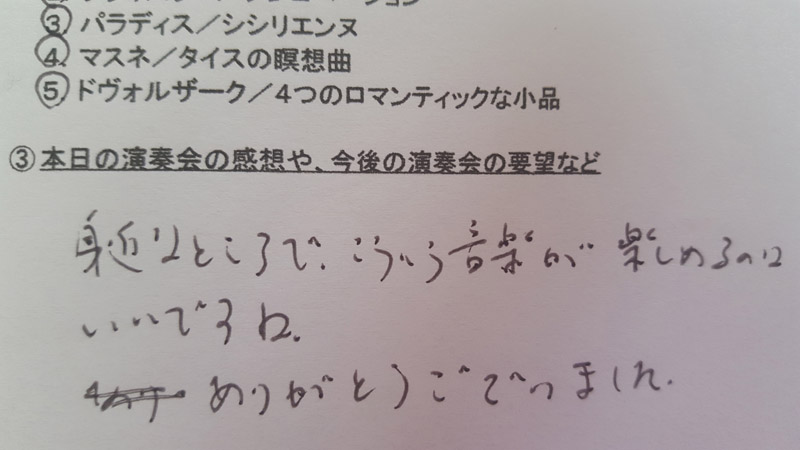 ③ パラディス／シシリエンヌ
④ マスネ／タイスの瞑想曲
⑤ ドヴォルザーク／４つのロマンティックな小品
③ 本日の演奏会の感想や、今後の演奏会の要望など
身近なところで、こういう音楽が楽しめるのは
いいですね。
ありがとうございました。